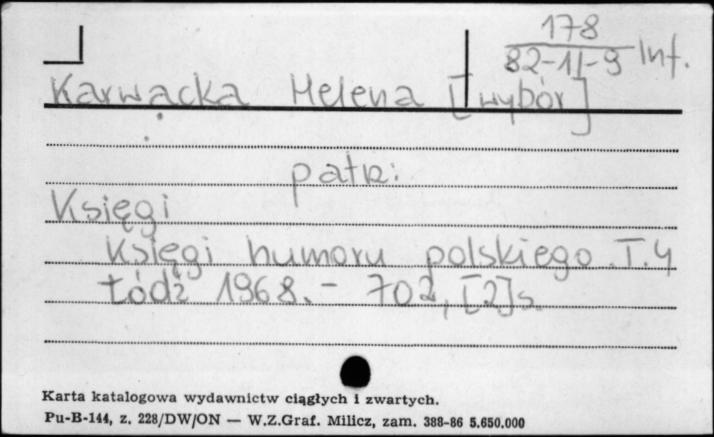 178
82-11-9 Inf.
Karwacka Helena [wybór]
patrz:
Księgi
Księgi humoru polskiego. T. 4
Łódź 1968. - 702, [2] s.
Karta katalogowa wydawnictw ciągłych i zwartych.
Pu-B-144, z. 228/DW/ON — W.Z.Graf. Milicz, zam. 388-86 5.650.000